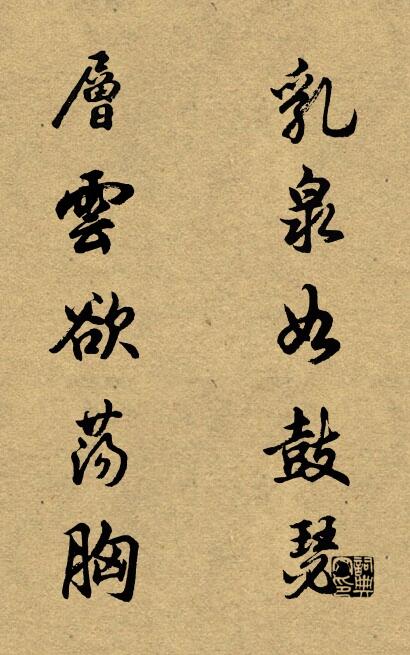 乳泉如鼓瑟
層雲欲蕩胸